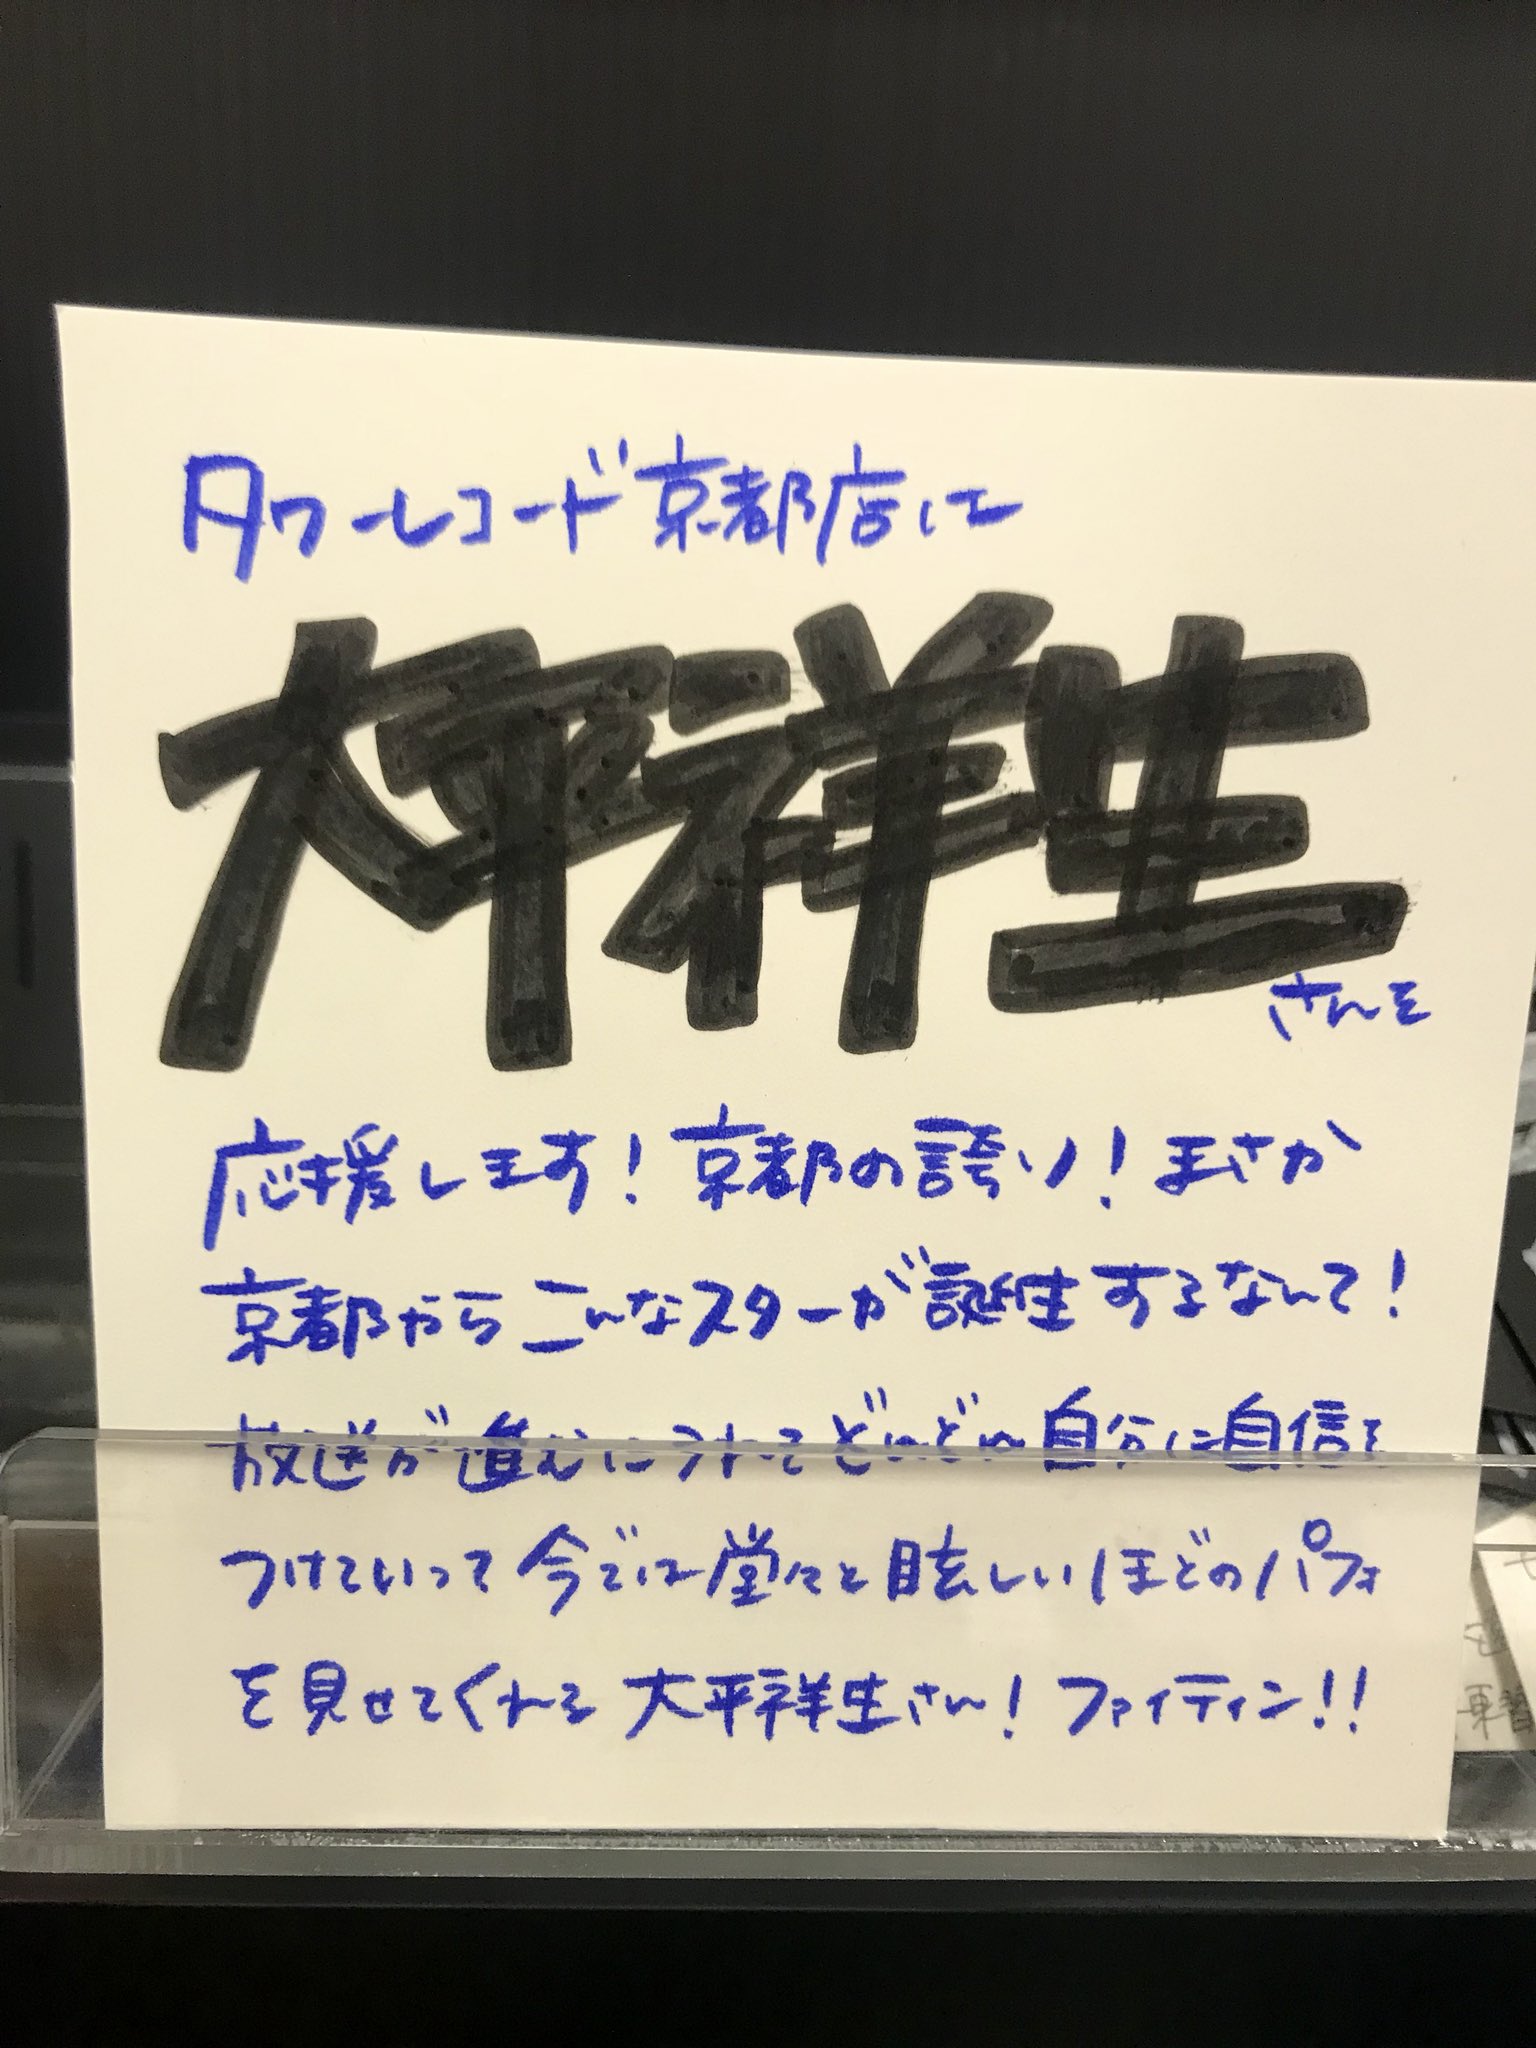 タワーレコード京都店は
大平祥生
さんを
応援します！京都の誇り！まさか
京都からこんなスターが誕生するなんて！
放送が進むにつれてどんどん自分に自信を
つけていって今では堂々と眩しいほどのパフォ
を見せてくれる大平祥生さん！ファイティン！！